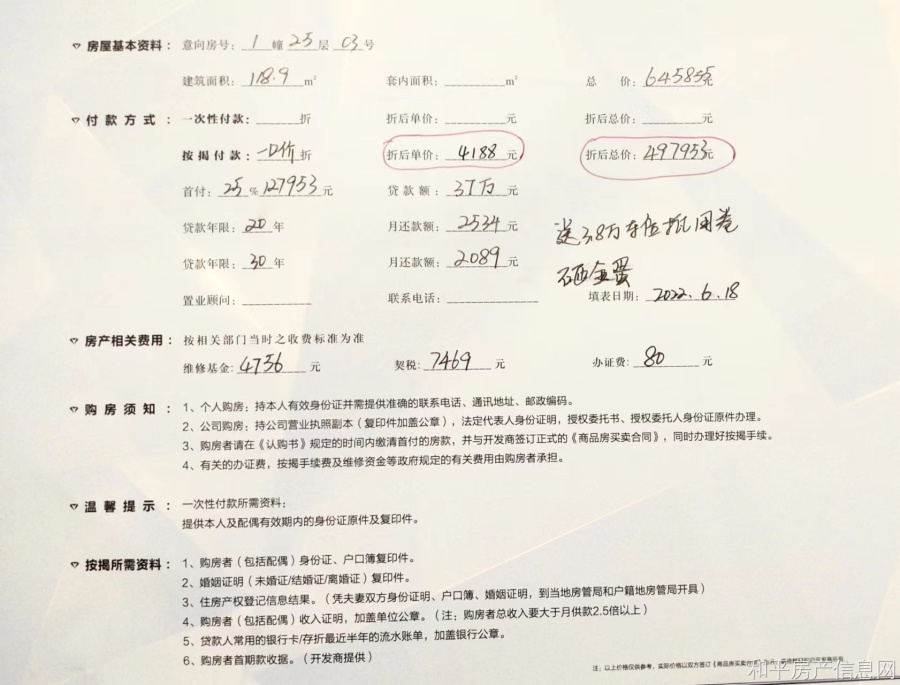 房屋基本资料：意向房号：1幢25层03号
建筑面积：118.9m² 套内面积：______m² 总价：645855元
付款方式：一次性付款：______折 折后单价：______元 折后总价：______元
按揭付款：一口价折 折后单价：4188元 折后总价：497953元
首付：25%127953元 贷款额：37万元
贷款年限：20年 月还款额：2534元 送3.8万车位抵用卷
贷款年限：30年 月还款额：2089元 砸金蛋
置业顾问：______ 联系电话：______ 填表日期：2022.6.18
房产相关费用：按相关部门当时之收费标准为准
维修基金：4756元 契税：7469元 办证费：80元
购房须知：1、个人购房：持本人有效身份证并需提供准确的联系电话、通讯地址、邮政编码。
2、公司购房：持公司营业执照副本（复印件加盖公章），法定代表人身份证明，授权委托书、授权委托人身份证原件办理。
3、购房者请在《认购书》规定的时间内缴清首付的房款，并与开发商签订正式的《商品房买卖合同》，同时办理好按揭手续。
4、有关的办证费，按揭手续费及维修资金等政府规定的有关费用由购房者承担。
温馨提示：一次性付款所需资料：
提供本人及配偶有效期内的身份证原件及复印件。
按揭所需资料：1、购房者（包括配偶）身份证、户口簿复印件。
2、婚姻证明（未婚证/结婚证/离婚证）复印件。
3、住房产权登记信息结果。（凭夫妻双方身份证明、户口簿、婚姻证明，到当地房管局和户籍地房管局开具）
4、购房者（包括配偶）收入证明，加盖单位公章。（注：购房者总收入要大于月供款2.5倍以上）
5、贷款人常用的银行卡/存折最近半年的流水账单，加盖银行公章。
6、购房者首期款收据。（开发商提供）
注：以上价格仅供参考，实际价格以双方签订《商品房买卖合同》
和平房产信息网